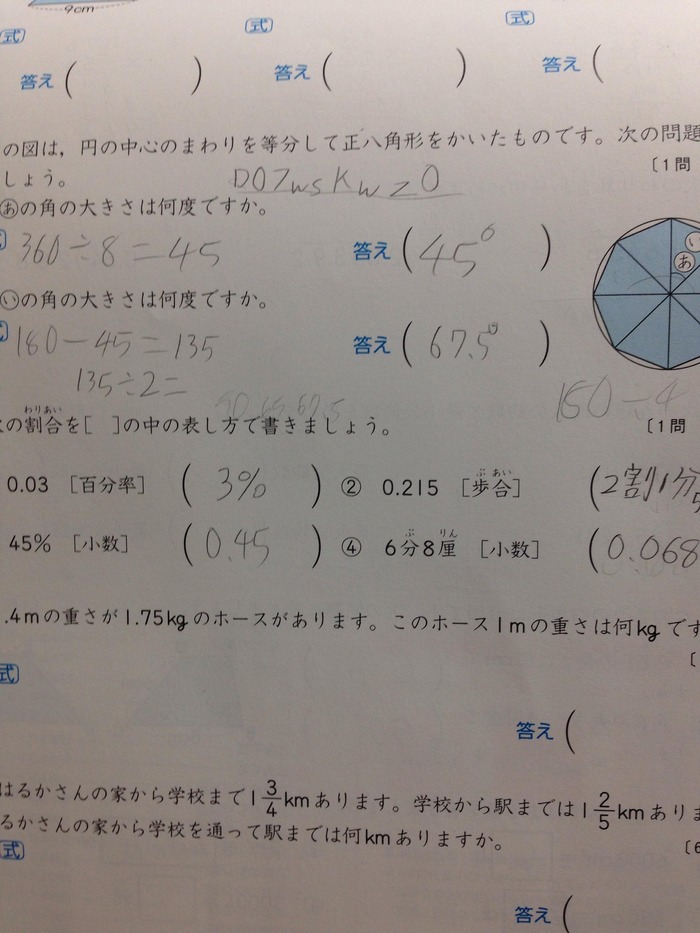 9cm
式 式 式
答え ( ) 答え ( ) 答え (
の図は，円の中心のまわりを等分して正八角形をかいたものです。次の問題
しょう。 〔1問
DOZwsKwzO
あの角の大きさは何度ですか。
360÷8=45 答え ( 45° )
いの角の大きさは何度ですか。
い
あ
180-45=135 答え ( 67.5° )
135÷2=
150÷4
の割合を[ ]の中の表し方で書きましょう。 〔1問
わりあい
0.03 [百分率] ( 3% ) ② 0.215 [歩合] (2割1分5
ぶあい
45% [小数] ( 0.45 ) ④ 6分8厘 [小数] (0.068
ぶ りん
.4mの重さが1.75kgのホースがあります。このホース1mの重さは何kgです
〔
式
答え (
はるかさんの家から学校まで1 3/4 kmあります。学校から駅までは1 2/5 kmありま
るかさんの家から学校を通って駅までは何kmありますか。
式 〔6
答え (